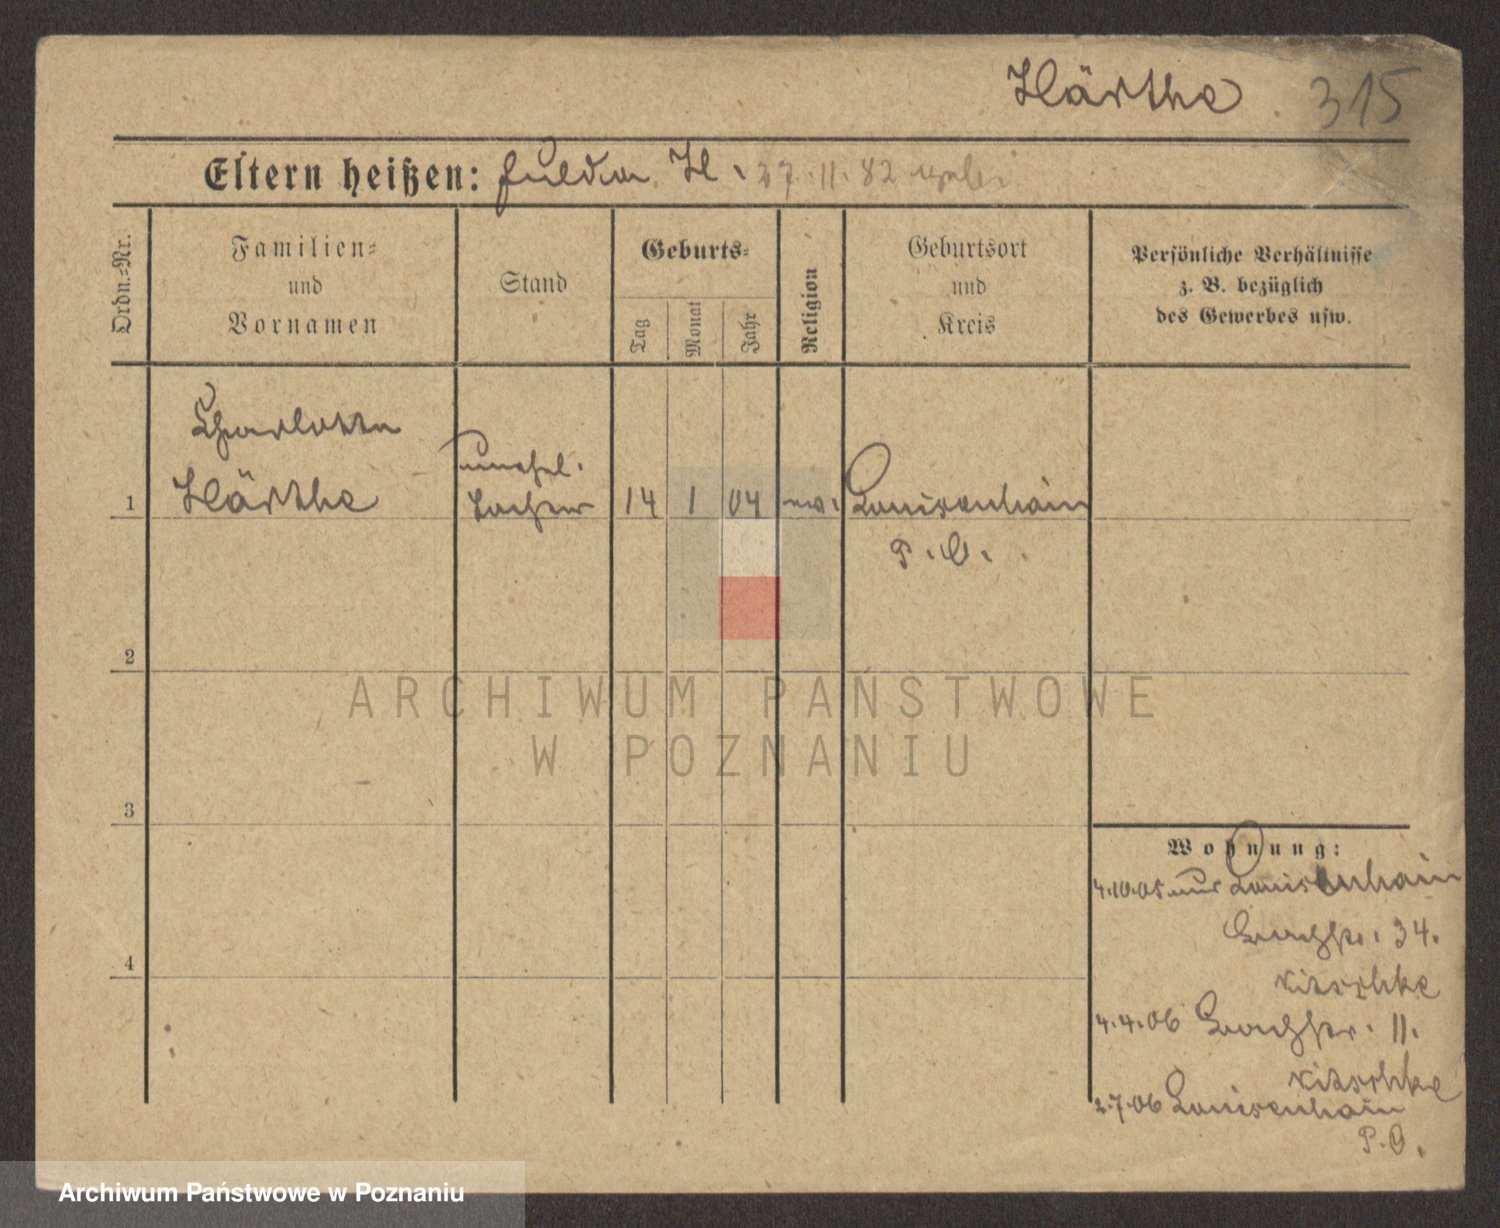 Härthe 315
Eltern heißen: Hulda H. 27.11.82
Ordn.-Nr.
Familien-
und
Vornamen
Stand
Geburts-
Tag
Monat
Jahr
Religion
Geburtsort
und
Kreis
Persönliche Verhältnisse
z. B. bezüglich
des Gewerbes usw.
Charlotte
unehel.
1 Härthe Tochter 14 1 04 ev. Louisenhain
P. O.
2
3
4
Wohnung:
4.10.05 aus Louisenhain
Bachstr. 34.
Nitschke
4.4.06 Bachstr. 11.
Nitschke
2.7.06 Louisenhain
P. O.
ARCHIWUM PAŃSTWOWE
W POZNANIU
Archiwum Państwowe w Poznaniu